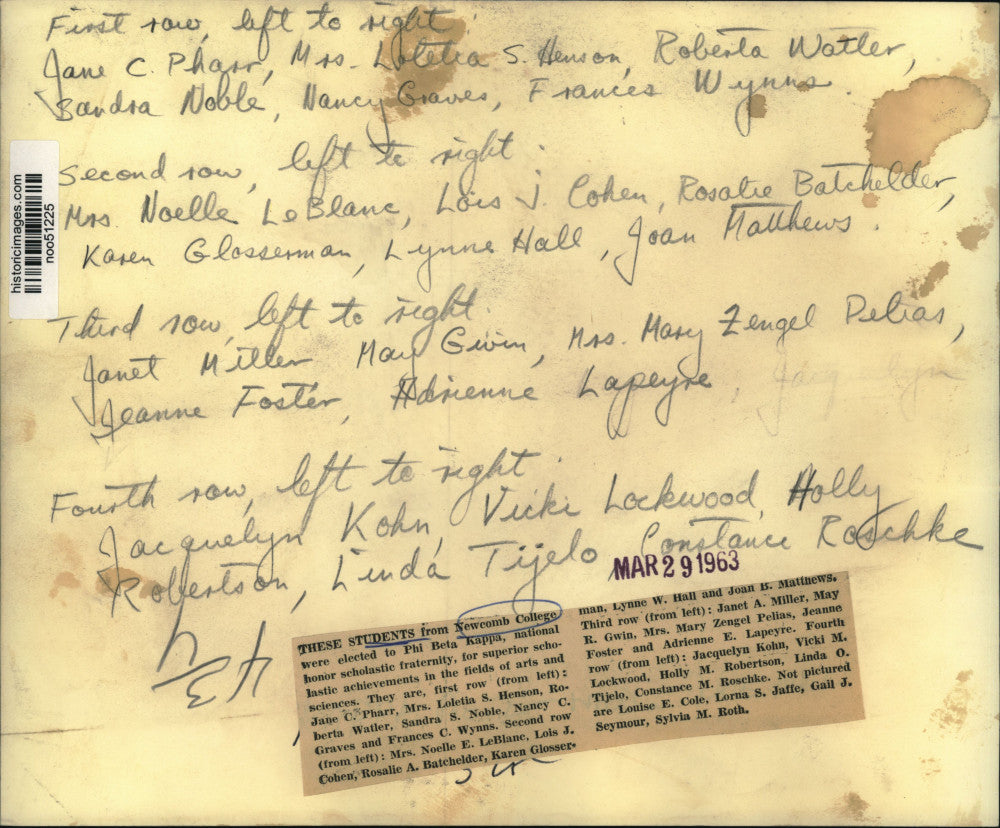 First row, left to right
Jane C. Pharr, Mrs. Loletia S. Henson, Roberta Watler,
Sandra Noble, Nancy Graves, Frances Wynns.
Second row, left to right:
Mrs. Noelle LeBlanc, Lois J. Cohen, Rosalie Batchelder,
Karen Glosserman, Lynne Hall, Joan Matthews.
Third row, left to right.
Janet Miller May Gwin, Mrs. Mary Zengel Pelias,
Jeanne Foster, Adrienne Lapeyre, Jacquelyn
Fourth row, left to right.
Jacquelyn Kohn, Vicki Lockwood, Holly
Robertson, Linda Tijelo Constance Roschke
historicimages.com
noo51225
MAR 29 1963
THESE STUDENTS from Newcomb College
were elected to Phi Beta Kappa, national
honor scholastic fraternity, for superior scho-
lastic achievements in the fields of arts and
sciences. They are, first row (from left):
Jane C. Pharr, Mrs. Loletia S. Henson, Ro-
berta Watler, Sandra S. Noble, Nancy C.
Graves and Frances C. Wynns. Second row
(from left): Mrs. Noelle E. LeBlanc, Lois J.
Cohen, Rosalie A. Batchelder, Karen Glosser-
man, Lynne W. Hall and Joan B. Matthews.
Third row (from left): Janet A. Miller, May
R. Gwin, Mrs. Mary Zengel Pelias, Jeanne
Foster and Adrienne E. Lapeyre. Fourth
row (from left): Jacquelyn Kohn, Vicki M.
Lockwood, Holly M. Robertson, Linda O.
Tijelo, Constance M. Roschke. Not pictured
are Louise E. Cole, Lorna S. Jaffe, Gail J.
Seymour, Sylvia M. Roth.